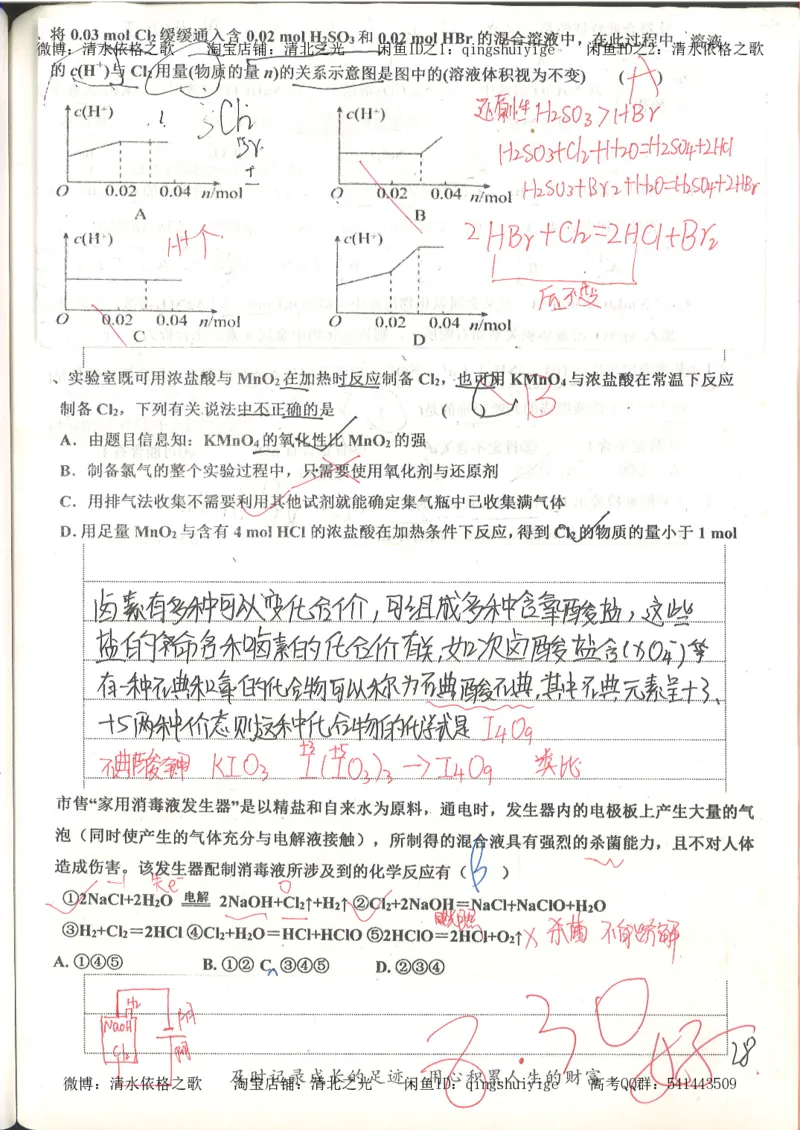 将 0.03 mol Cl₂ 缓缓通入含 0.02 mol H₂SO₃ 和 0.02 mol HBr 的混合溶液中，在此过程中，溶液
微博：清水依格之歌 淘宝店铺：清北之光 闲鱼ID之1：qingshuiyige 闲鱼ID之2：清水依格之歌
的 c(H⁺)与 Cl₂ 用量(物质的量 n)的关系示意图是图中的(溶液体积视为不变) ( A )
还原性 H₂SO₃>HBr
H₂SO₃+Cl₂+H₂O=H₂SO₄+2HCl
H₂SO₃+Br₂+H₂O=H₂SO₄+2HBr
2HBr+Cl₂=2HCl+Br₂
后不变
c(H⁺)
O 0.02 0.04 n/mol
A
c(H⁺)
O 0.02 0.04 n/mol
B
H⁺个
c(H⁺)
O 0.02 0.04 n/mol
C
c(H⁺)
O 0.02 0.04 n/mol
D
、实验室既可用浓盐酸与 MnO₂ 在加热时反应制备 Cl₂，也可用 KMnO₄ 与浓盐酸在常温下反应
制备 Cl₂，下列有关说法中不正确的是 ( ) B
A．由题目信息知：KMnO₄ 的氧化性比 MnO₂ 的强
B．制备氯气的整个实验过程中，只需要使用氧化剂与还原剂
C．用排气法收集不需要利用其他试剂就能确定集气瓶中已收集满气体
D．用足量 MnO₂ 与含有 4 mol HCl 的浓盐酸在加热条件下反应，得到 Cl₂ 的物质的量小于 1 mol
卤素有多种可以变化合价，可组成多种含氧酸盐，这些
盐的命名和卤素的化合价有关，如次卤酸盐含(XO₄⁻)等
有一种碘和氧的化合物可以称为碘酸碘，其中碘元素呈+3、
+5两种价态则这种化合物的化学式是 I₄O₉
碘酸钾 KIO₃ +3 +5 I(IO₃)₃ → I₄O₉ 类比
市售“家用消毒液发生器”是以精盐和自来水为原料，通电时，发生器内的电极板上产生大量的气
泡（同时使产生的气体充分与电解液接触），所制得的混合液具有强烈的杀菌能力，且不对人体
造成伤害。该发生器配制消毒液所涉及到的化学反应有（ B ）
-1 失e⁻ 0
①2NaCl+2H₂O 电解 2NaOH+Cl₂↑+H₂↑ ②Cl₂+2NaOH＝NaCl+NaClO+H₂O
③H₂+Cl₂＝2HCl ④Cl₂+H₂O＝HCl+HClO ⑤2HClO＝2HCl+O₂↑ × 杀菌 不能分解
A. ①④⑤ B. ①② C. ③④⑤ D. ②③④
H₂
NaOH
Cl₂
阴
阳
3.30
28
及时记录成长的足迹 用心积累人生的财富
微博：清水依格之歌 淘宝店铺：清北之光 闲鱼ID：qingshuiyige 高考QQ群：541443509